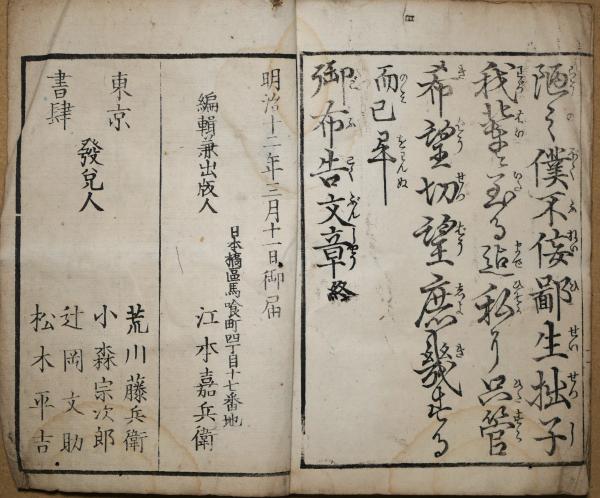 陋し僕不佞鄙生拙子
我輩に至る迄私り只管
希望切望庶幾する
而已畢
御布告文章終
明治十二年三月十一日御届
日本橋區馬喰町四丁目十七番地
編輯兼出版人 江本嘉兵衛
東京
書肆
發兌人
荒川藤兵衛
小森宗次郎
辻岡文助
松木平吉